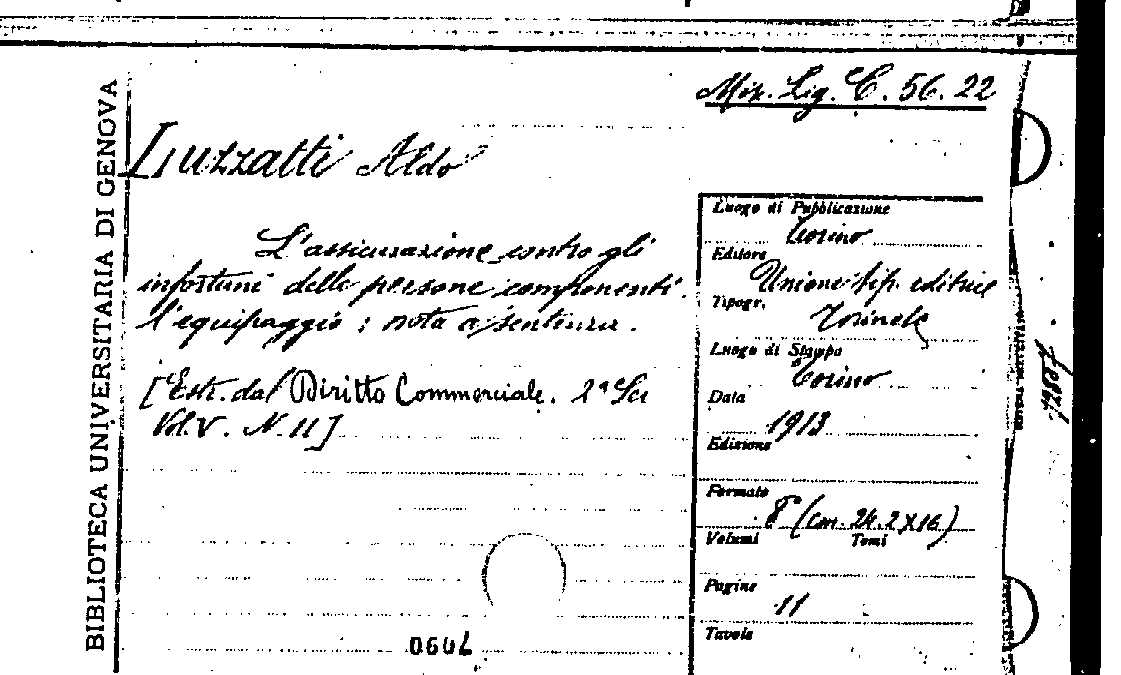 Misc. Lig. C. 56. 22
BIBLIOTECA UNIVERSITARIA DI GENOVA
Luzzatti Aldo
L'assicurazione contro gli
infortuni delle persone componenti
l'equipaggio; nota a sentenza.
[Estr. dal Diritto Commerciale. 2ª Ser
Vol. V. N. 11]
Luogo di Pubblicazione
Torino
Editore
Unione tip. editrice
Tipogr.
Torinese
Luogo di Stampa
Torino
Data
1913
Edizione
Formato
8° (cm. 24.2X16)
Volumi Tomi
Pagine
11
Tavole